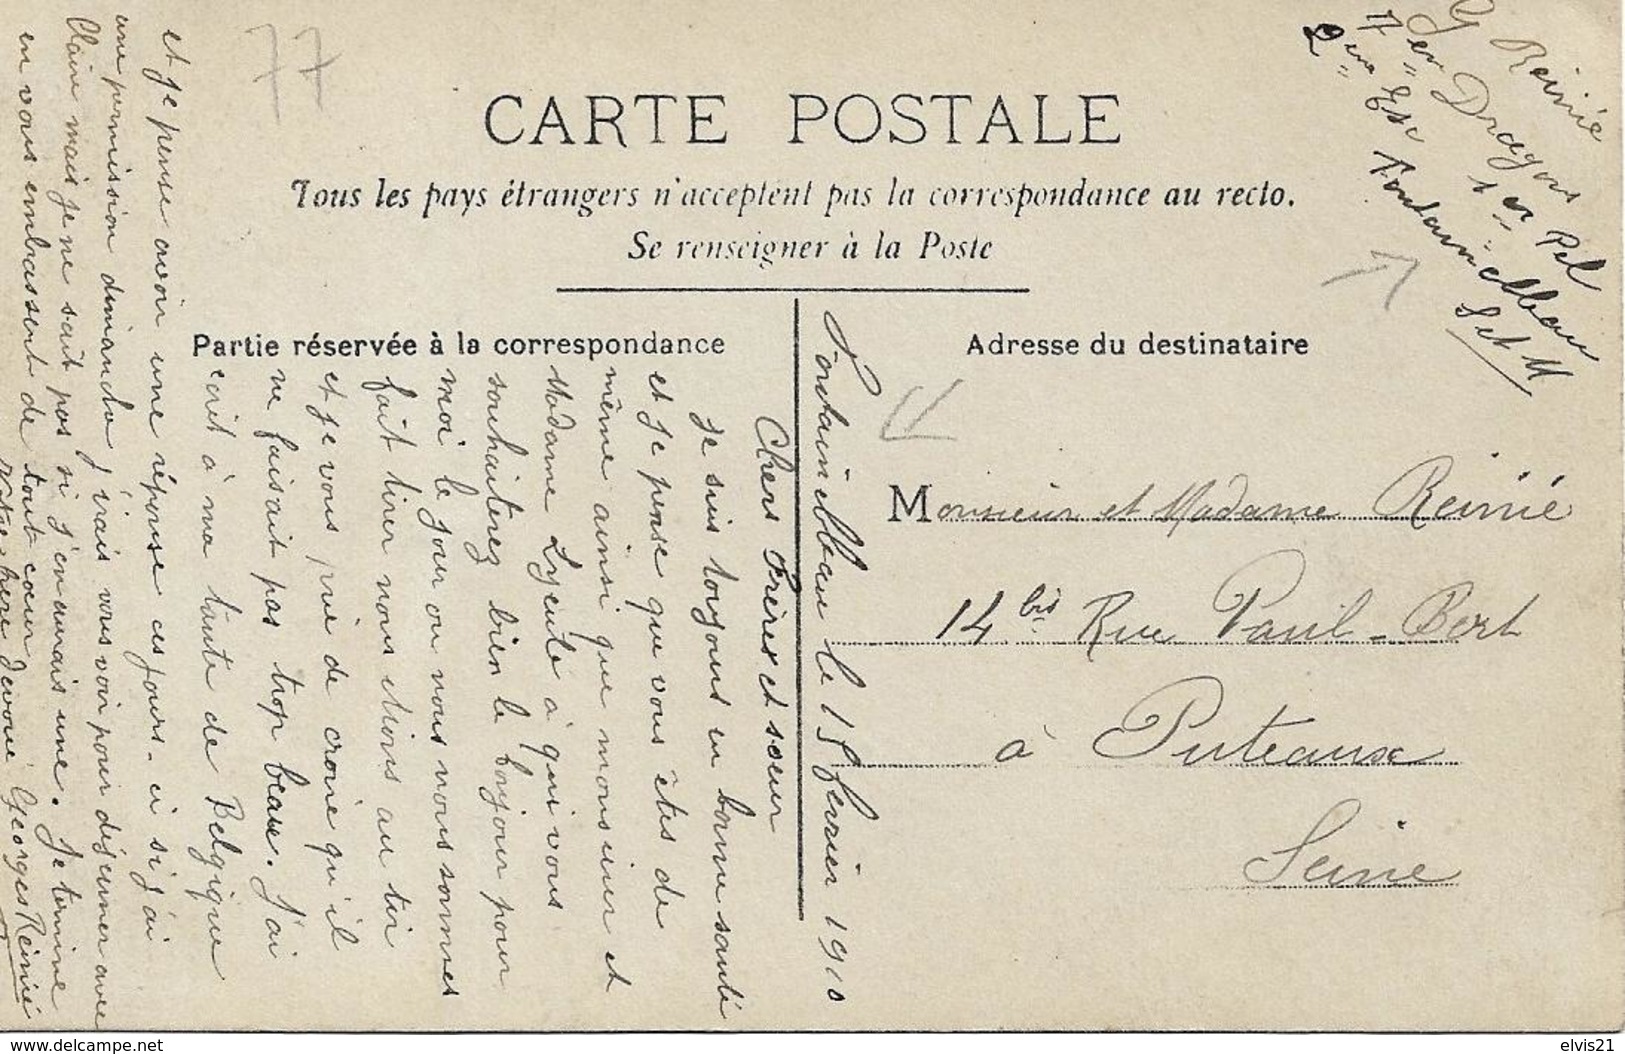 CARTE POSTALE
Tous les pays étrangers n'acceptent pas la correspondance au recto.
Se renseigner à la Poste
Partie réservée à la correspondance
Adresse du destinataire
77
G Reinié
7 em Dragons
2 eme Esc 1 er Pel
Fontainebleau
S et M
Monsieur et Madame Reinié
14 bis Rue Paul-Bert
à Puteaux
Seine
Fontainebleau le 15 fevrier 1910
Chers Frères et soeur
Je suis toujours en bonne santé
et je pense que vous êtes de
même ainsi que monsieur et
Madame à qui vous
souhaiterez bien le bonjour pour
moi le jour ou nous nous sommes
fait tirer nous étions au tir
et je vous prie de croire qu'il
ne faisait pas trop beau. J'ai
écrit à ma tante de Belgique
et je pense avoir une réponse ces jours-ci si j'ai
une permission dimanche j'irais vous voir pour déjeuner avec
Claire mais je ne sait pas si j'en aurais une. Je termine
en vous embrassent de tout coeur
Votre frère devoué Georges Reinié
elvis21